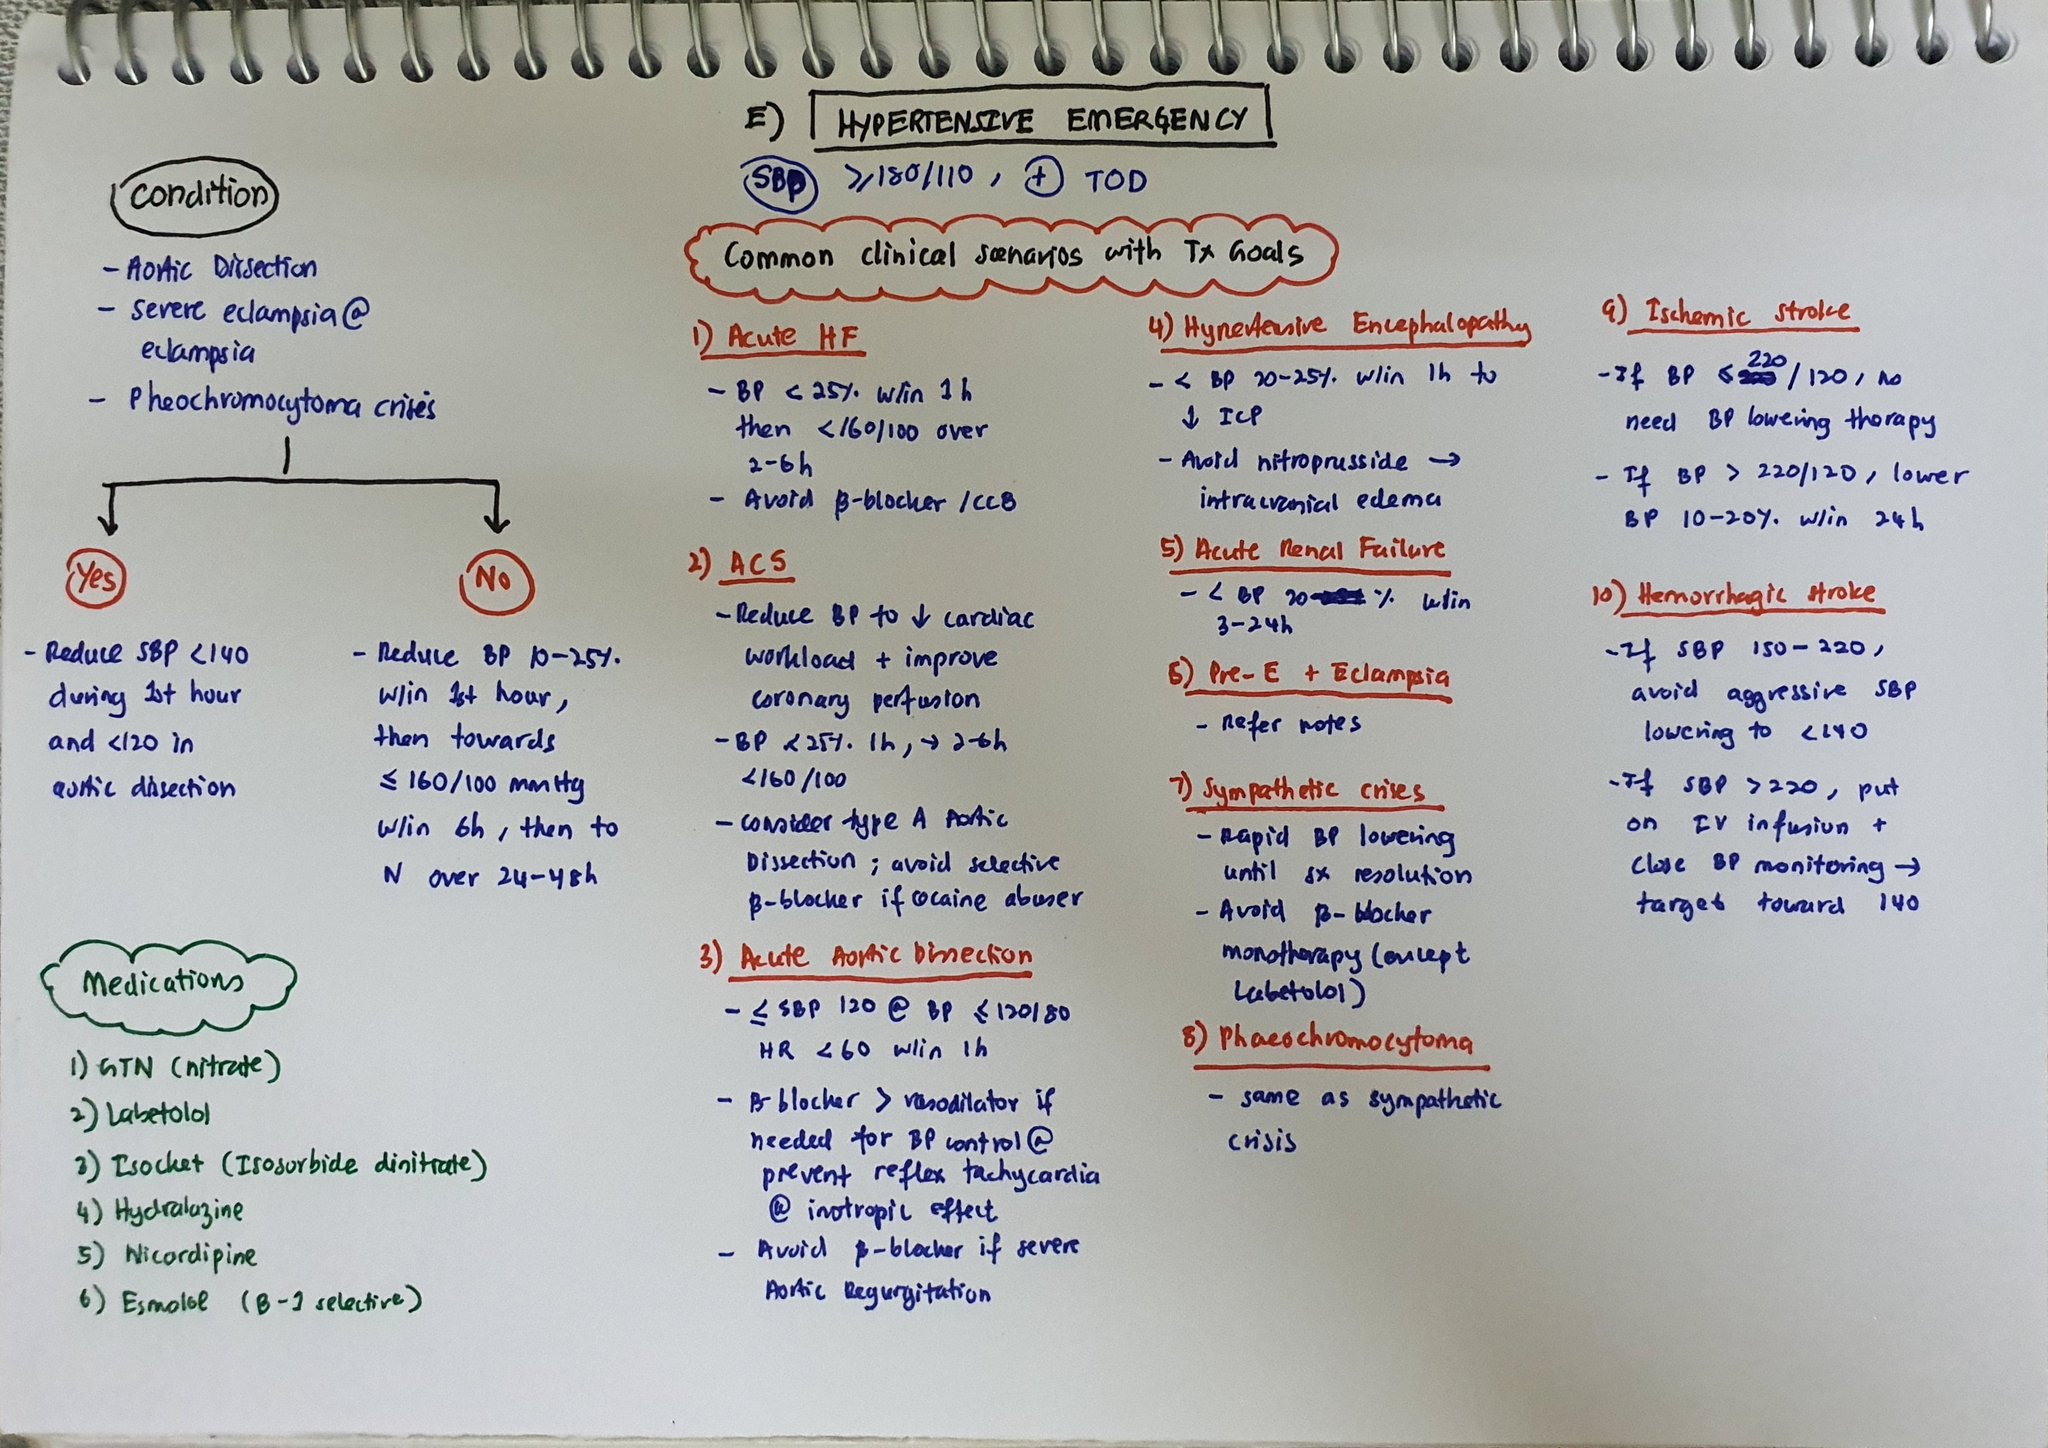 E) HYPERTENSIVE EMERGENCY
SBP ≥180/110, + TOD
Condition
- Aortic Dissection
- Severe eclampsia @
eclampsia
- Pheochromocytoma crises
Yes
- Reduce SBP <140
during 1st hour
and <120 in
aortic dissection
No
- Reduce BP 10-25%.
w/in 1st hour,
then towards
≤ 160/100 mmHg
w/in 6h, then to
N over 24-48h
Medications
1) GTN (nitrate)
2) Labetolol
3) Isocket (Isosorbide dinitrate)
4) Hydralazine
5) Nicardipine
6) Esmolol (B-1 selective)
Common clinical scenarios with Tx Goals
1) Acute HF
- BP < 25% w/in 1h
then <160/100 over
2-6h
- Avoid β-blocker /CCB
2) ACS
- Reduce BP to ↓ cardiac
workload + improve
coronary perfusion
- BP <25% 1h, → 2-6h
<160/100
- consider type A Aortic
Dissection; avoid selective
β-blocker if cocaine abuser
3) Acute Aortic Dissection
- ≤ SBP 120 @ BP ≤120/80
HR <60 w/in 1h
- B-blocker > vasodilator if
needed for BP control @
prevent reflex tachycardia
@ inotropic effect
- Avoid β-blocker if severe
Aortic Regurgitation
4) Hypertensive Encephalopathy
- < BP 20-25% w/in 1h to
↓ ICP
- Avoid nitroprusside →
intracranial edema
5) Acute Renal Failure
- < BP 20 % w/in
3-24h
6) Pre-E + Eclampsia
- Refer notes
7) Sympathetic crises
- Rapid BP lowering
until sx resolution
- Avoid β-blocker
monotherapy (except
Labetolol)
8) Phaeochromocytoma
- same as sympathetic
crisis
9) Ischemic stroke
- If BP ≤ 220/120, no
need BP lowering therapy
- If BP > 220/120, lower
BP 10-20% w/in 24h
10) Hemorrhagic stroke
- If SBP 150-220,
avoid aggressive SBP
lowering to <140
- If SBP >220, put
on IV infusion +
close BP monitoring →
target toward 140